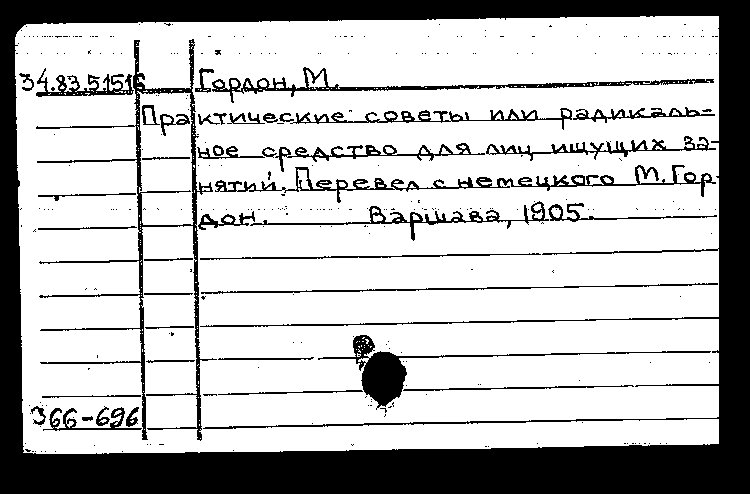 34.83.51516 Гордон, М.
Практические советы или радикаль=
ное средство для лиц ищущих за-
нятий. Перевел с немецкого М. Гор-
дон. Варшава, 1905.
366-696